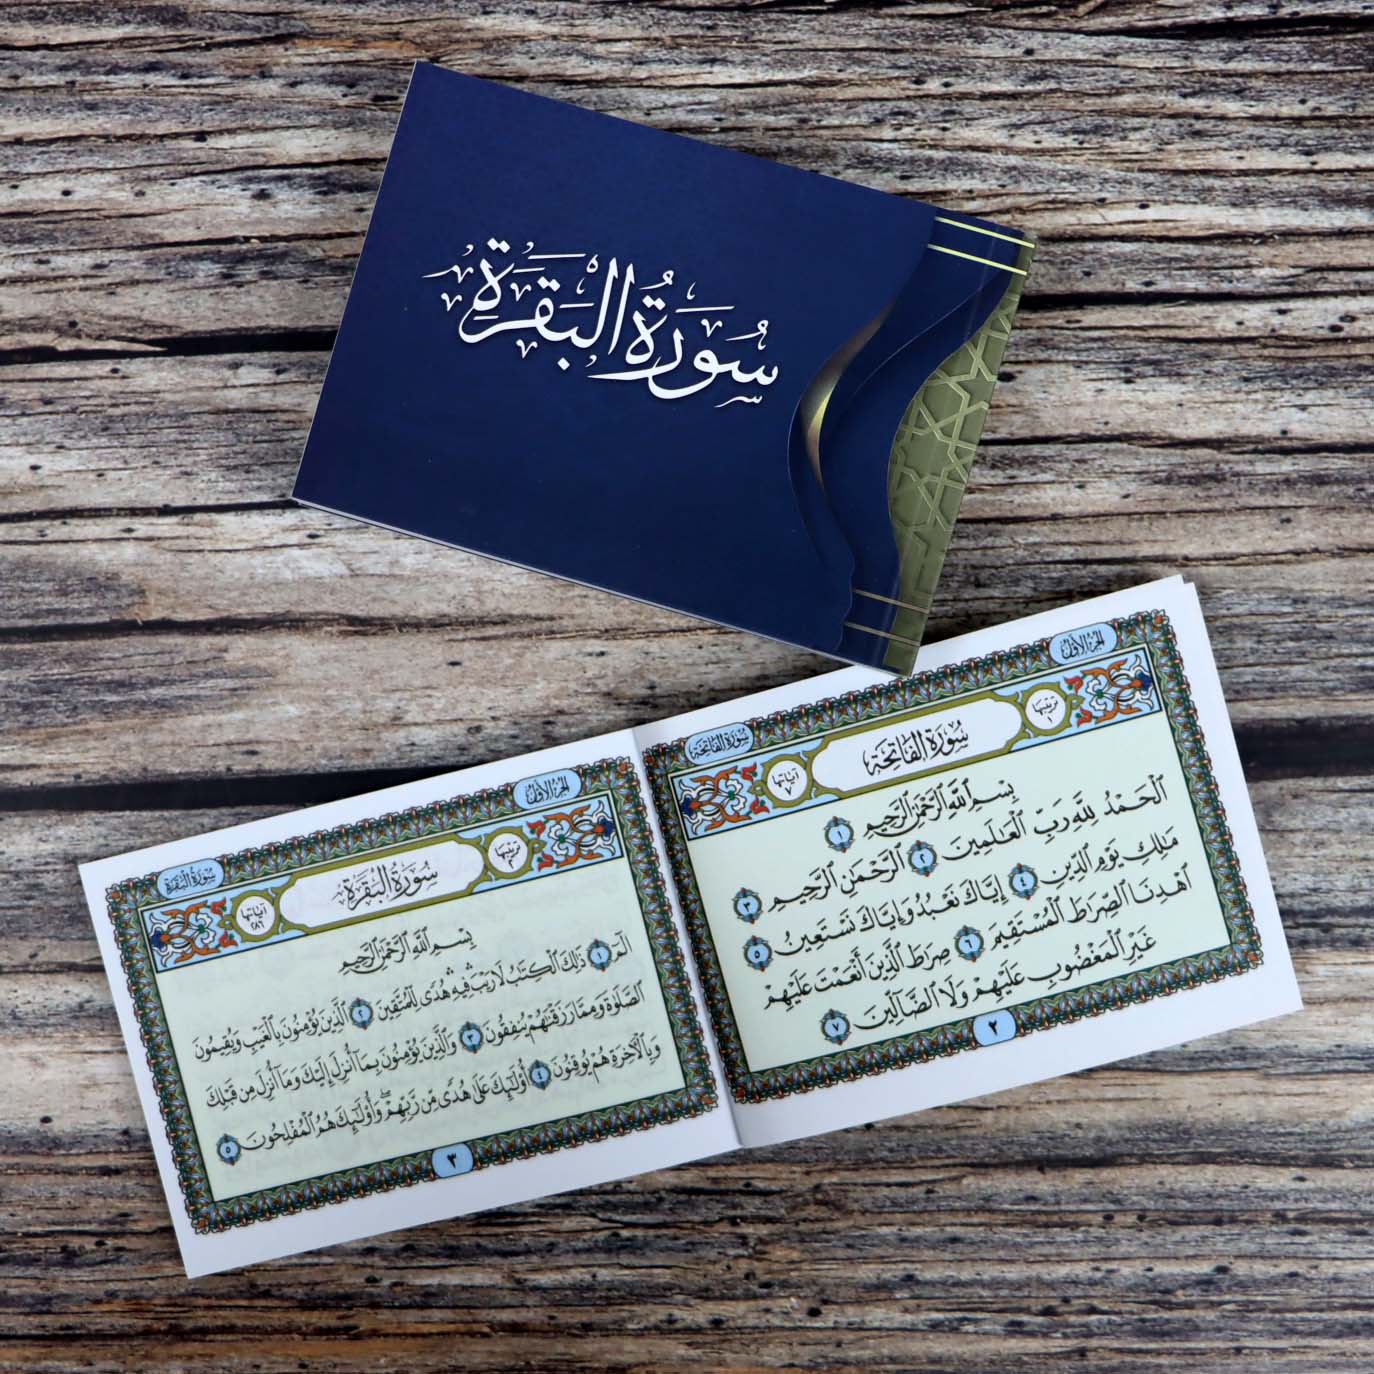 سُورَةُ البَقَرَةِ
الجزء الأول
سورة الفاتحة
ترتيبها ١
سُورَةُ الْفَاتِحَةِ
آياتها ٧
بِسْمِ ٱللَّهِ ٱلرَّحْمَٰنِ ٱلرَّحِيمِ ١
ٱلْحَمْدُ لِلَّهِ رَبِّ ٱلْعَٰلَمِينَ ٢ ٱلرَّحْمَٰنِ ٱلرَّحِيمِ ٣
مَٰلِكِ يَوْمِ ٱلدِّينِ ٤ إِيَّاكَ نَعْبُدُ وَإِيَّاكَ نَسْتَعِينُ ٥
ٱهْدِنَا ٱلصِّرَٰطَ ٱلْمُسْتَقِيمَ ٦ صِرَٰطَ ٱلَّذِينَ أَنْعَمْتَ عَلَيْهِمْ
غَيْرِ ٱلْمَغْضُوبِ عَلَيْهِمْ وَلَا ٱلضَّآلِّينَ ٧
٢
الجزء الأول
سورة البقرة
ترتيبها ٢
سُورَةُ الْبَقَرَةِ
آياتها ٢٨٦
بِسْمِ ٱللَّهِ ٱلرَّحْمَٰنِ ٱلرَّحِيمِ
الٓمٓ ١ ذَٰلِكَ ٱلْكِتَٰبُ لَا رَيْبَ ۛ فِيهِ ۛ هُدًى لِّلْمُتَّقِينَ ٢ ٱلَّذِينَ يُؤْمِنُونَ بِٱلْغَيْبِ وَيُقِيمُونَ
ٱلصَّلَوٰةَ وَمِمَّا رَزَقْنَٰهُمْ يُنفِقُونَ ٣ وَٱلَّذِينَ يُؤْمِنُونَ بِمَآ أُنزِلَ إِلَيْكَ وَمَآ أُنزِلَ مِن قَبْلِكَ
وَبِٱلْءَاخِرَةِ هُمْ يُوقِنُونَ ٤ أُو۟لَٰٓئِكَ عَلَىٰ هُدًى مِّن رَّبِّهِمْ ۖ وَأُو۟لَٰٓئِكَ هُمُ ٱلْمُفْلِحُونَ ٥
٣